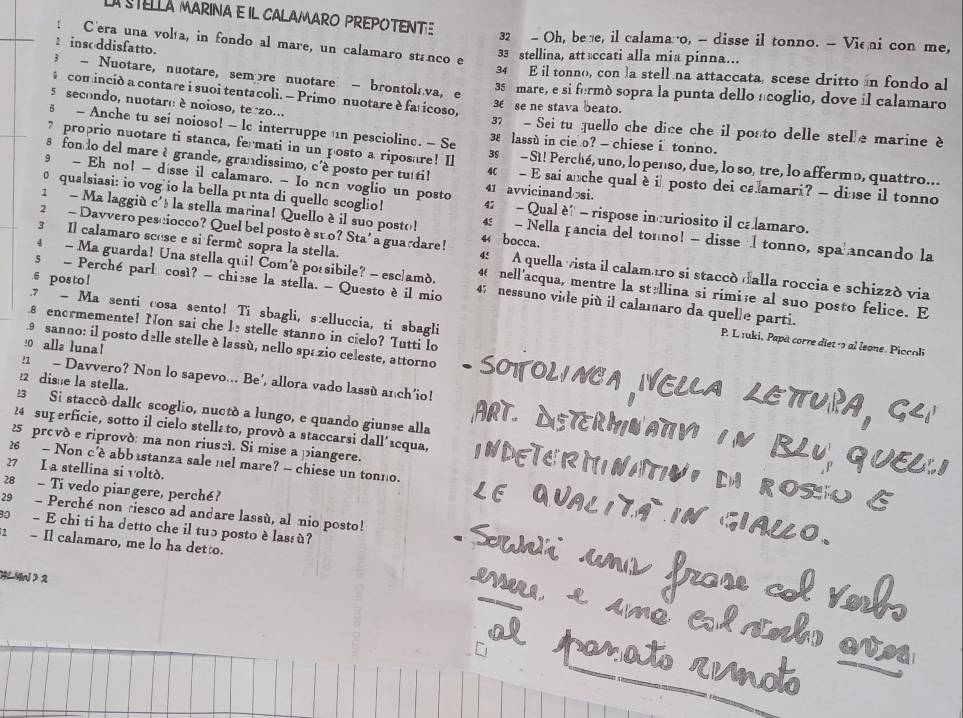 LA STELLA MARINA E IL CALAMARO PREPOTENTE
1 C'era una volta, in fondo al mare, un calamaro stanco e
2 insoddisfatto.
3 - Nuotare, nuotare, sempre nuotare - brontolava, e
4 cominciò a contare i suoi tentacoli. - Primo nuotare è faticoso,
5 secondo, nuotare è noioso, terzo...
6 - Anche tu sei noioso! - lo interruppe un pesciolino. - Se
7 proprio nuotare ti stanca, fermati in un posto a riposare! Il
8 fondo del mare è grande, grandissimo, c'è posto per tutti!
9 - Eh no! - disse il calamaro. - Io non voglio un posto
0 qualsiasi: io voglio la bella punta di quello scoglio!
1 - Ma laggiù c'è la stella marina! Quello è il suo posto!
2 - Davvero pesciocco? Quel bel posto è suo? Sta' a guardare!
3 Il calamaro scese e si fermò sopra la stella.
4 - Ma guarda! Una stella qui! Com'è possibile? - esclamò.
5 - Perché parli così? - chiese la stella. - Questo è il mio
6 posto!
7 - Ma senti cosa sento! Ti sbagli, stelluccia, ti sbagli
8 enormemente! Non sai che le stelle stanno in cielo? Tutti lo
9 sanno: il posto delle stelle è lassù, nello spazio celeste, attorno
20 alla luna!
21 - Davvero? Non lo sapevo... Be', allora vado lassù anch'io!
22 disse la stella.
23 Si staccò dallo scoglio, nuotò a lungo, e quando giunse alla
24 superficie, sotto il cielo stellato, provò a staccarsi dall'acqua,
25 provò e riprovò: ma non riuscì. Si mise a piangere.
26 - Non c'è abbastanza sale nel mare? - chiese un tonno.
27 La stellina si voltò.
28 - Ti vedo piangere, perché?
29 - Perché non riesco ad andare lassù, al mio posto!
30 - E chi ti ha detto che il tuo posto è lassù?
31 - Il calamaro, me lo ha detto.
32 - Oh, bene, il calamaro, - disse il tonno. - Vieni con me,
33 stellina, attaccati alla mia pinna...
34 E il tonno, con la stellina attaccata, scese dritto in fondo al
35 mare, e si fermò sopra la punta dello scoglio, dove il calamaro
36 se ne stava beato.
37 - Sei tu quello che dice che il posto delle stelle marine è
38 lassù in cielo? - chiese il tonno.
39 - Sì! Perché, uno, lo penso, due, lo so, tre, lo affermo, quattro...
40 - E sai anche qual è il posto dei calamari? - disse il tonno
41 avvicinandosi.
42 - Qual è? - rispose incuriosito il calamaro.
43 - Nella pancia del tonno! - disse il tonno, spalancando la
44 bocca.
45 A quella vista il calamaro si staccò dalla roccia e schizzò via
46 nell'acqua, mentre la stellina si rimise al suo posto felice. E
47 nessuno vide più il calamaro da quelle parti.
P. Liuki, Papà corre dietro al leone. Piccoli
- SOTTOLINEA, NELLA LETTURA, GLI
ART. DETERMINATIVI IN BLU, QUELLI
INDETERMINATIVI IN ROSSO E
LE QUALITÀ IN GIALLO.
- Scrivi una frase col verbo
essere, e una col verbo avere
al passato remoto